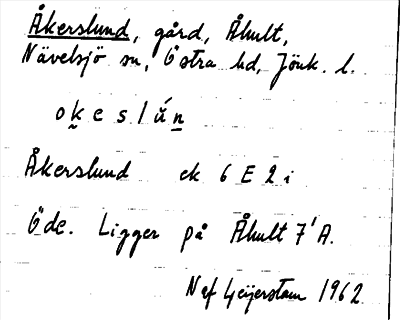 Åkerslund, gård, Åhult,
Nävelsjö sn, Östra hd, Jönk. l.
o k e s l ú n
Åkerslund ek 6 E 2 i
Öde. Ligger på Åhult 7¹ A.
N af Geijerstam 1962